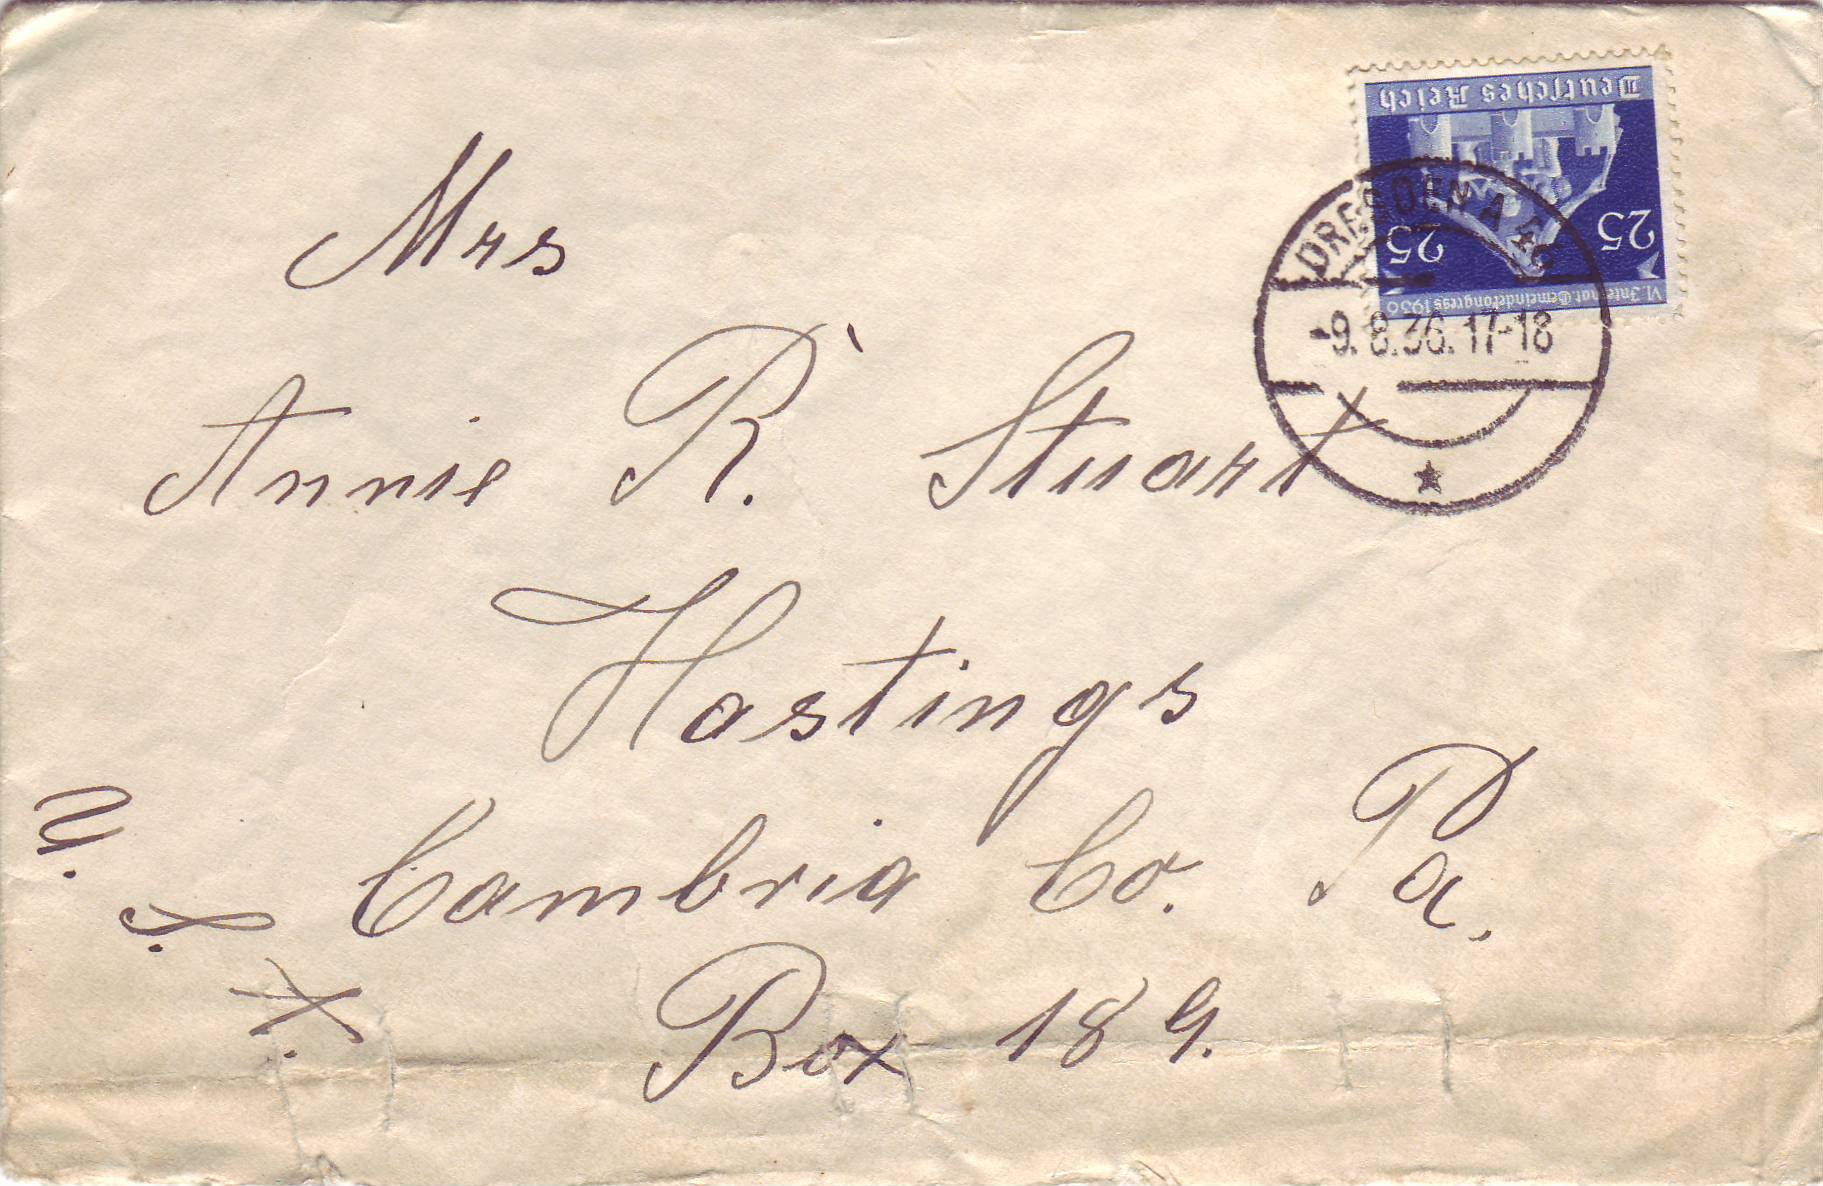 Deutsches Reich
25 25
VI. Internat. Gemeindekongress 1936
DRESDEN A
-9.8.36.17-18
Mrs
Annie R. Stuart
Hastings
Cambria Co. Pa.
Box 189.
U.
S.
A.